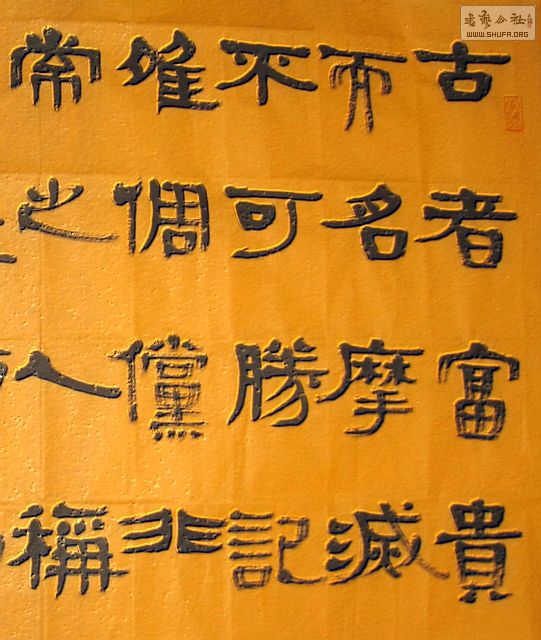 書藝公社
WWW.SHUFA.ORG
古者富貴
而名摩滅
不可勝記
唯倜儻非
常之人稱